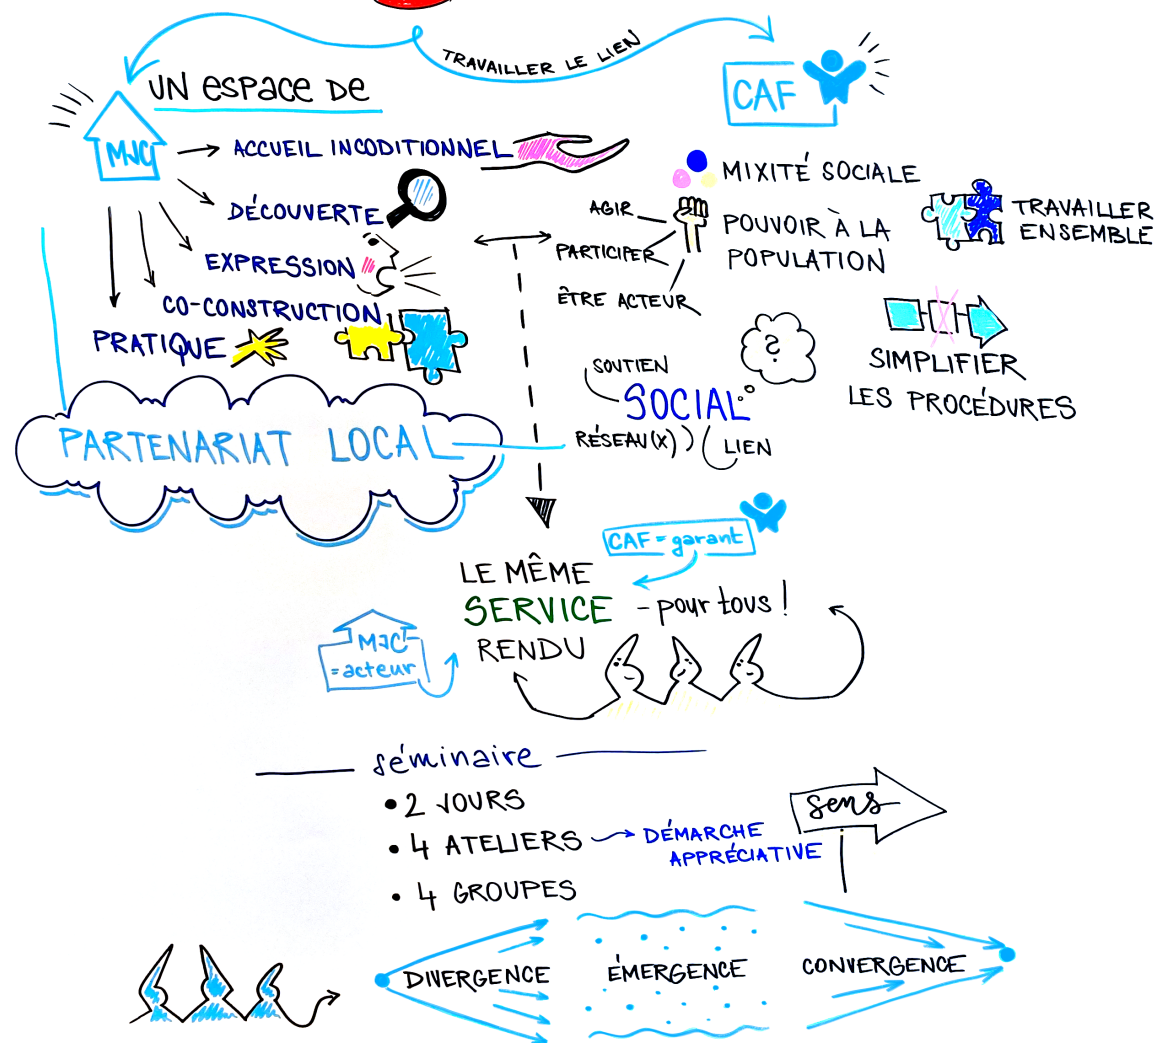 TRAVAILLER LE LIEN
UN ESPACE DE
MJC
CAF
ACCUEIL INCODITIONNEL
DÉCOUVERTE
EXPRESSION
CO-CONSTRUCTION
PRATIQUE
MIXITÉ SOCIALE
AGIR
PARTICIPER
ÊTRE ACTEUR
POUVOIR À LA
POPULATION
TRAVAILLER
ENSEMBLE
SIMPLIFIER
LES PROCÉDURES
?
SOUTIEN
SOCIAL
RÉSEAU(X)
LIEN
PARTENARIAT LOCAL
CAF = garant
LE MÊME
SERVICE - pour tous !
RENDU
MJC
= acteur
séminaire
• 2 JOURS
• 4 ATELIERS
DÉMARCHE
APPRÉCIATIVE
• 4 GROUPES
sens
DIVERGENCE
ÉMERGENCE
CONVERGENCE